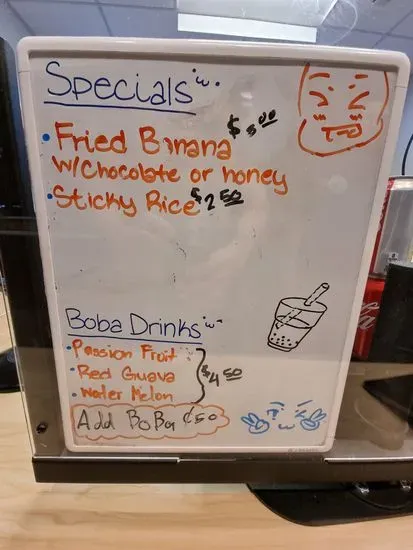 Specials
• Fried Banana $5.00
w/Chocolate or honey
• Sticky Rice $2.50
Boba Drinks
• Passion Fruit
• Red Guava $4.50
• Water Melon
Add BoBa ¢50